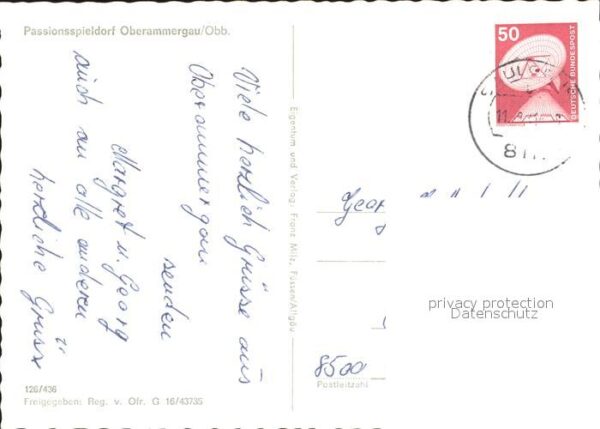 Passionsspieldorf Oberammergau/Obb.
Viele herzlich Grüsse aus
Oberammergau
senden
Margret u. Georg
auch an alle anderen
herzliche Grüsse
126/436
Freigegeben: Reg. v. Ofr. G 16/43735
Eigentum und Verlag: Franz Milz, Füssen/Allgäu
50
DEUTSCHE BUNDESPOST
Geor
8500
Postleitzahl
privacy protection
Datenschutz